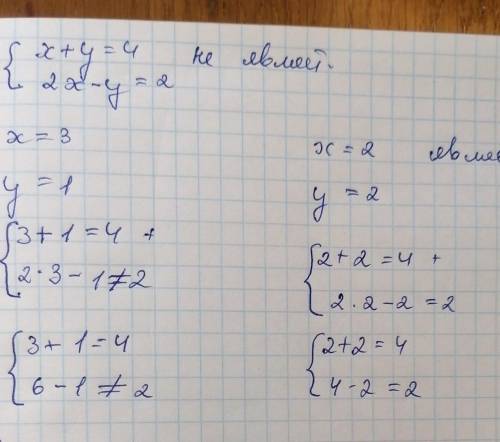 x+y=4 не являет.
2x-y=2
x=3
y=1
3+1=4 +
2·3-1≠2
3+1=4
6-1≠2
x=2 являе
y=2
2+2=4 +
2·2-2=2
2+2=4
4-2=2